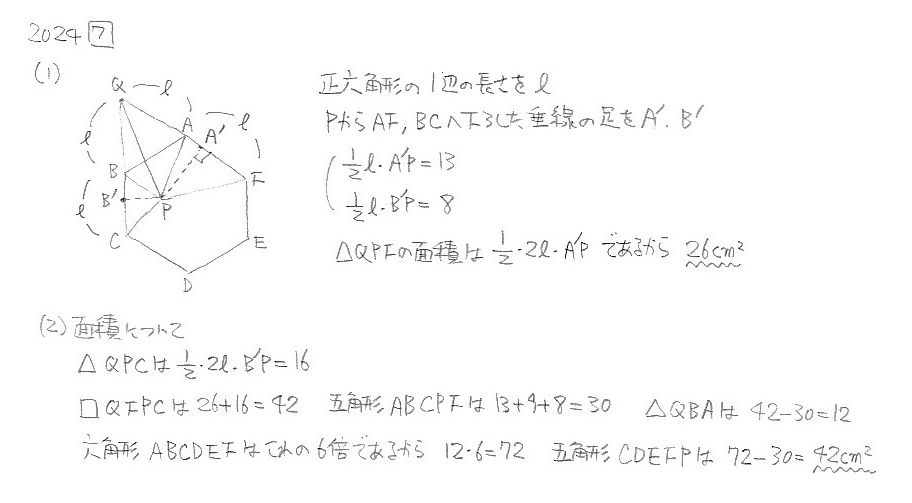 2024 7
(1)
Q l
l A A' l
B F
B' P
l C E
D
正六角形の1辺の長さをl
PからAF,BCへ下ろした垂線の足をA'.B'
1/2 l・A'P=13
1/2 l・B'P=8
△QPFの面積は 1/2・2l・A'P であるから 26cm²
(2) 面積について
△QPCは 1/2・2l・B'P=16
□QFPCは 26+16=42 五角形ABCPFは 13+9+8=30 △QBAは 42-30=12
六角形ABCDEFはこれの6倍であるから 12・6=72 五角形CDEFPは 72-30=42cm²